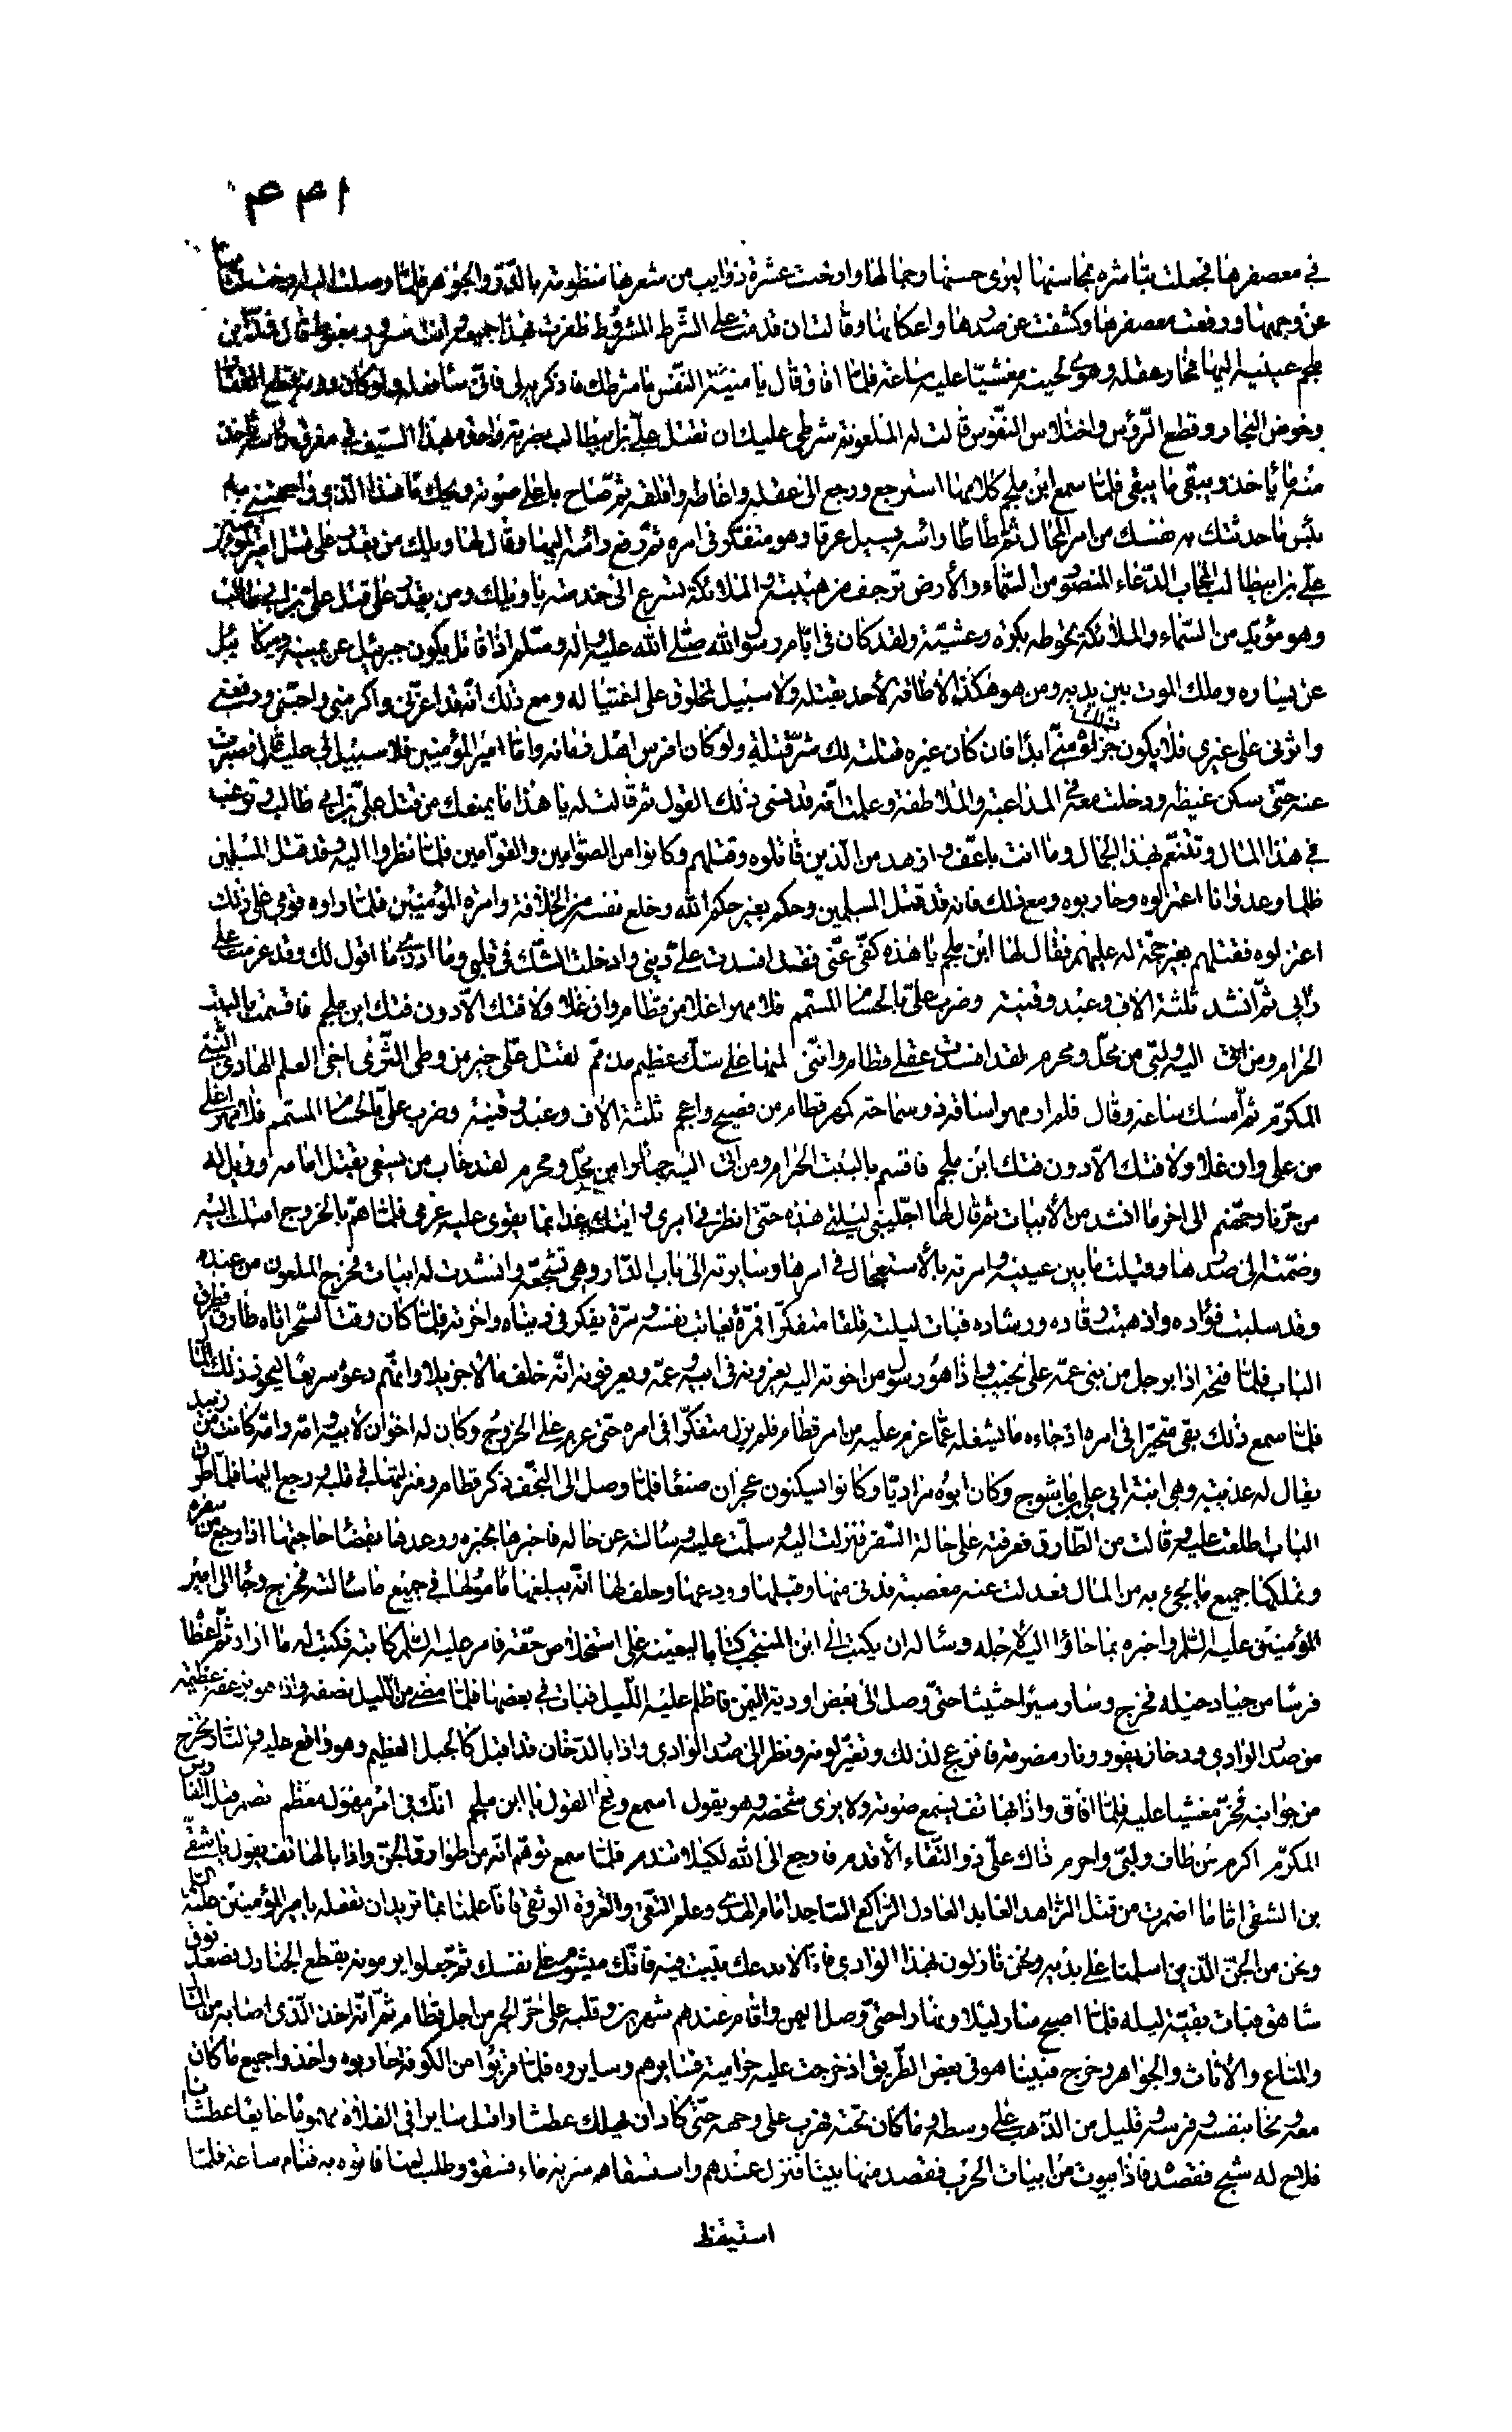 ١٣٣
في معصفرها فجعلت تباشره بمحاسنها ليرى حسنها وجمالها وارخت عشرة ذوايب من شعرها منظومة بالدّر والجوهر فلمّا وصلت اليه ارخت لثاما
عن وجهها ورفعت معصفرها وكشفت عن صدرها واعكانها وقالت ان قدمت على الشّرط المشروط ظفرت بهذا جميعه وانت مسرور مغبوط قال فمدّ ابن
ملجم عينيه اليها فحار عقله وهوى لحينه مغشيّا عليه ساعة فلمّا افاق قال يا منية النّفس ما شرطك فاذكريه لي فانّي سافعله ولو كان دونه قطع القفار
وخوض البحار وقطع الرّؤس واختلاس النفّوس قالت له الملعونة شرطي عليك ان تقتل عليّ بن ابيطالب بضربة واحدة بهذا السّيف في مفرق رأسه يأخذ
منه ما يأخذ ويبقى ما يبقى فلمّا سمع ابن ملجم كلامها استرجع ورجع الى عقله واغاظه واقلقه ثم صاح باعلى صوته ويحك ما هذا الّذي واجهتيني به
بئس ما حدثتك به نفسك من امر المحال ثم طأطأ رأسه يسيل عرقا وهو متفكّر في امره ثم رفع رأسه اليها وقال لها ويلك من يقدر على قتل امير المؤمنين
عليّ بن ابيطالب المجاب الدّعاء المنصور من السّماء والأرض ترجف من هيبته والملائكة تسرع الى خدمته يا ويلك ومن يقدر على قتل عليّ بن ابي طالب
وهو مؤيّد من السّماء والملائكة تحوطه بكرة وعشيّة ولقد كان في ايّام رسول الله صلّى الله عليه واله وسلّم اذا قاتل يكون جبرئيل عن يمينه وميكائيل
عن يساره وملك الموت بين يديه ومن هو هكذا لا طاقة لأحد بقتله ولا سبيل لمخلوق على اغتياله ومع ذلك انّه قد اعزّني واكرمني واحبّني ورفعني
واثرني على غيري فلا يكون ذلك جزاؤه منّي ابدا فان كان غيره قتلته لك شرّ قتلة ولو كان افرس اهل زمانه وامّا امير المؤمنين فلا سبيل لي عليه قال فصبرت
عنه حتّى سكن غيظه ودخلت معه في المداعبة والملاطفة وعلمت انّه قد نسى ذلك القول ثم قالت له يا هذا ما يمنعك من قتل عليّ بن ابي طالب وترغب
في هذا المال وتتنعّم بهذا الجمال وما انت باعفّ وازهد من الّذين قاتلوه وقتلهم وكانوا من الصّوامين والقوّامين فلمّا نظروا اليه وقد قتل المسلمين
ظلما وعدوانا اعتزلوه وحاربوه ومع ذلك فانه قد قتل المسلمين وحكم بغير حكم الله وخلع نفسه من الخلافة وامرة المؤمنين فلمّا راوه قومي على ذلك
اعتزلوه فقتلهم بغير حجّة له عليهم فقال لها ابن ملجم يا هذه كفّي عنّي فقد افسدت عليّ ديني وادخلت الشّك في قلبي وما ادري ما اقول لك وقد عزمت على
رأي ثمّ انشد ثلثة الاف وعبد وقينة وضرب عليّ بالحسام المسمم فلا مهرا غلا من قطام وان غلا ولا فتك الّا دون فتك ابن ملجم فاقسمت بالبيت
الحرام ومن اتى اليه ولبّى من محلّ ومحرم لقد افسدت عقلي قطام وانّني لمنها على شكّ عظيم مذمّم لقتل عليّ خير من وطى الثّرى اخي العلم الهادي النبّي
المكرّم ثم امسك ساعة وقال فلم ار مهرا ساقه ذو سماحة كمهر قطام من فصيح واعجم ثلثة الاف وعبد وقينة وضرب عليّ بالحسام المسمم فلا مهر اغلى
من علي وان غلا ولا فتك الّا دون فتك ابن ملجم فاقسم بالبيت الحرام ومن اتى اليه جهارا من محلّ ومحرم لقد خاب من يسعى بقتل امامه وويل له
من حرّنار جهنّم الى اخر ما انشد من الأبيات ثم قال لها اجّليني ليلتي هذه حتّى انظر في امري واتيك غدا بما يقوى عليه عزمي فلمّا همّ بالخروج اقبلت اليه
وضمّته الى صدرها وقبلت ما بين عينيه وامرته بالأستعجال في امرها وسايرته الى باب الدّار وهي تشجّعه وانشدت له ابيات فخرج الملعون من عنده
وقد سلبت فؤاده واذهبت رقاده ورشاده فبات ليلته قلقا متفكرّا فمرّة يعاتب نفسه ومرّة يفكر في دنياه واخرته فلمّا كان وقت السّحر اتاه طارق فطرق
الباب فلمّا فتحه اذا برجل من بني عمّه على نجيب واذا هو رسول من اخوته اليه يعزونه في ابيه وعمّه ويعرفونه انّه خلف مالا جزيلا وانّهم دعوه سريعا ليحوز ذلك المال
فلمّا سمع ذلك بقى متحيّرا في امره اذ جاءه ما يشغله عمّا عزم عليه من امر قطام فلم يزل متفكّرا في امره حتّى عزم على الخروج وكان له اخوان لأبيه وامّه وامّه كانت من زبيد
يقال له عدنية وهي ابنة ابي علي بن ماشوج وكان ابوه مراديّا وكانوا يسكنون عجران صنعا فلمّا وصل الى النّجف ذكر قطام ومنزلتها في قلبه ورجع اليها فلمّا طرق
الباب اطلعت عليه وقالت من الطّارق فعرفته على حالة السّفر فنزلت اليه وسلّمت عليه وسألته عن حاله فاخبرها بخبره ووعدها بقضاء حاجتها اذا رجع من سفره
وتملكها جميع ما يجيء به من المال فعدلت عنه مغضبة فدنى منها وقبلها وودعها وحلف لها انّه يبلغها مأمولها في جميع ما سألته فخرج وجاء الى امير
المؤمنين عليه السّلم واخبره بما جاؤا اليه لأجله وسأله ان يكتب الى ابن المنتجب كتابا ليعينه على استخلاص حقّه فامر عليه السّلم كاتبه فكتب له ما اراد ثمّ اعطاه
فرسا من جياد خيله فخرج وسار سيرا حثيثا حتّى وصل الى بعض اودية اليمن فاظلم عليه اللّيل فبات في بعضها فلمّا مضى من اللّيل نصفه واذا هو بزعقة عظيمة
من صدر الوادي ودخان يفور ونار مضرمة فانزعج لذلك وتغيّر لونه ونظر الى صدر الوادي واذا بالدّخان قد اقبل كالجبل العظيم وهو واقع عليه والنّار تخرج
من جوانبه فخرّ مغشيا عليه فلمّا افاق واذا بهاتف يسمع صوته ولا يرى شخصه وهو يقول اسمع وع القول يا ابن ملجم انّك في امر مهول معظم تضمر قتل الفارس
المكرّم اكرم من طاف ولبّى واحرم ذاك عليّ ذو التّقاء الأقدم فارجع الى الله لكيلا تندم فلمّا سمع توهّم انّه من طوارق الجنّ واذا بالهاتف يقول يا شقّي
بن الشقي امّا ما اضمرت من قتل الزّاهد العابد العادل الرّاكع السّاجد امام الهدى وعلم التّقى والعروة الوثقى فانّا علمنا بما تريد ان تفعله بامير المؤمنين عليه السّلم
ونحن من الجنّ الّذين اسلمنا على يديه ونحن نازلون بهذا الوادي فانّا لا ندعك تبيت فيه فانّك ميشوم على نفسك ثم جعلوا يرمونه بقطع الجنادل فصعد فوق
شاهق فبات بقيّة ليله فلمّا اصبح سار ليلا ونهارا حتّى وصل اليمن واقام عندهم شهرين وقلبه على حرّ الجمر من اجل قطام ثمّ انّه اخذ الّذي اصابه من المال
والمتاع والأثاث والجواهر وخرج فبينا هو في بعض الطّريق اذ خرجت عليه حرامية فسايرهم وسايروه فلمّا قربوا من الكوفة حاربوه واخذوا جميع ما كان
معه ونجا بنفسه وفرسه وقليل من الذّهب على وسطه وما كان تحته فهرب على وجهه حتّى كاد ان يهلك عطشا واقبل سايرا في الفلاة مهموما جايعا عطشانا
فلاح له شبح فقصده فاذا بيوت من ابيات الحرب فقصد منها بيتا فنزل عندهم واستسقاهم شربة ماء فسقوه وطلب لبنا فاتوه به فنام ساعة فلمّا
استيقظ